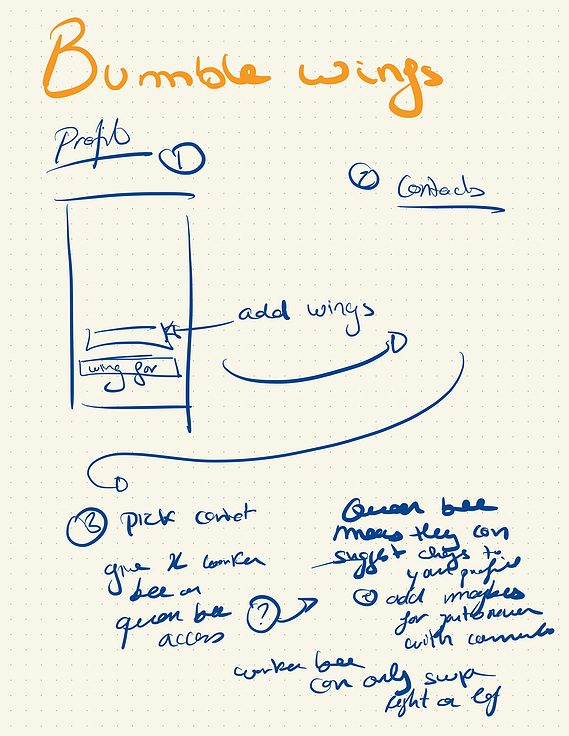 Bumble wings
Profile ①
② Contacts
add wings
wing for
③ pick contact
give x worker
bee or
queen bee
access ?
Queen bee
means they can
suggest chngs to
your profile
② add maybes
for
with comments
worker bee
can only swipe
right or lef